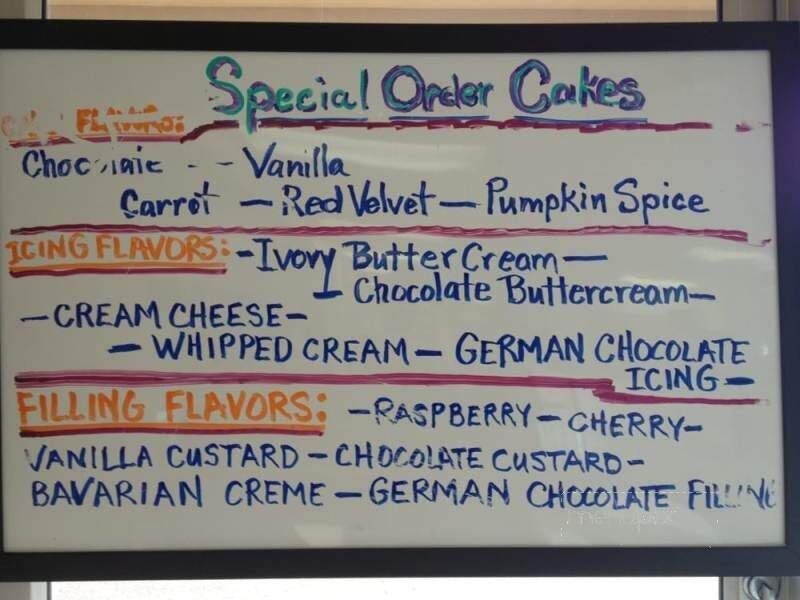 Special Order Cakes
FLAVORS:
Chocolate - - Vanilla
Carrot - Red Velvet - Pumpkin Spice
ICING FLAVORS: - Ivory Butter Cream -
- Chocolate Buttercream -
- CREAM CHEESE -
- WHIPPED CREAM - GERMAN CHOCOLATE
ICING -
FILLING FLAVORS: - RASPBERRY - CHERRY -
VANILLA CUSTARD - CHOCOLATE CUSTARD -
BAVARIAN CREME - GERMAN CHOCOLATE FILLING